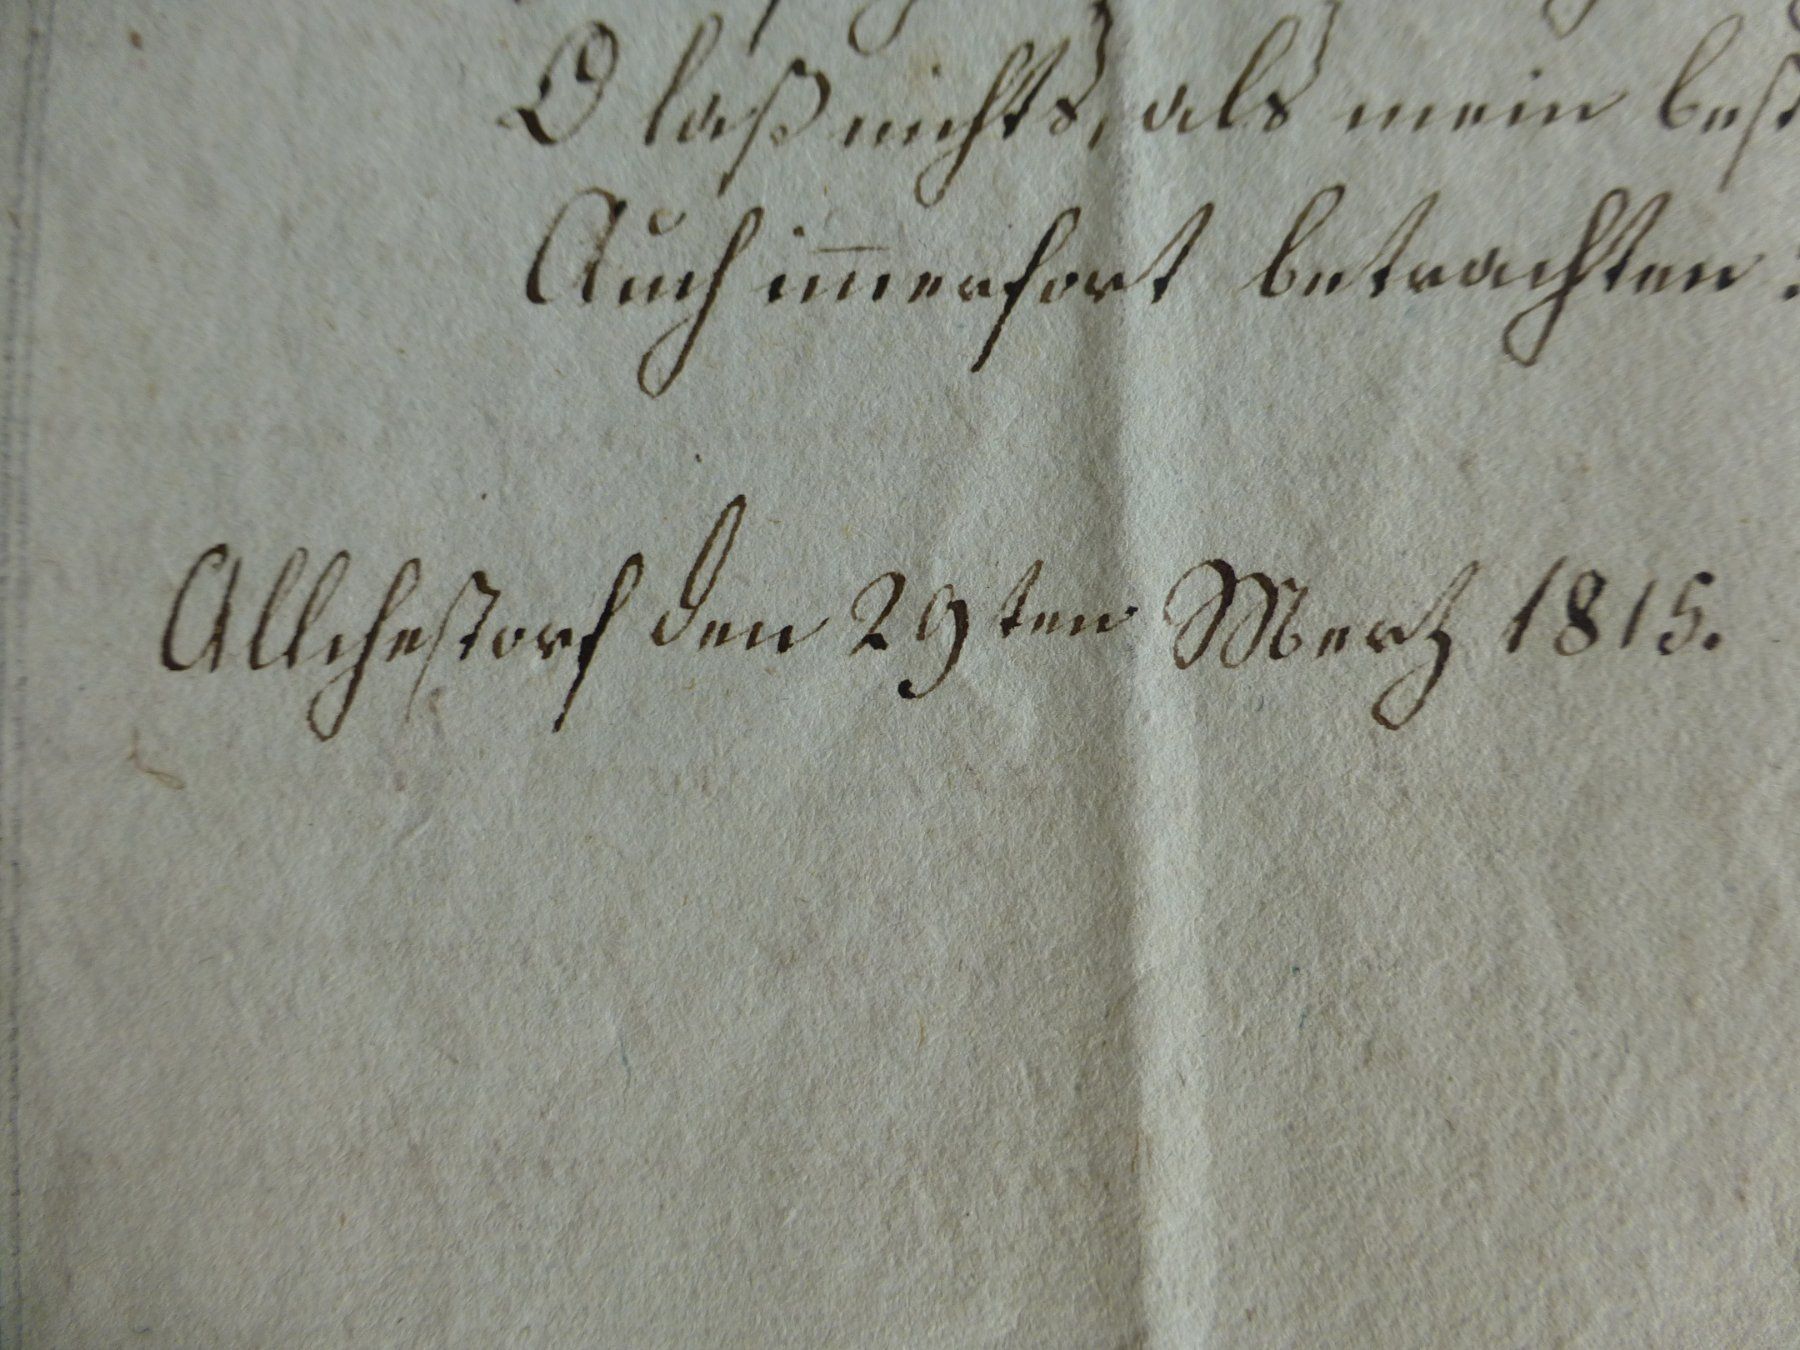 O laß nichts, als mein best
Auch im̅erfort betrachten:
Allchestorf den 29ten Mertz 1815.